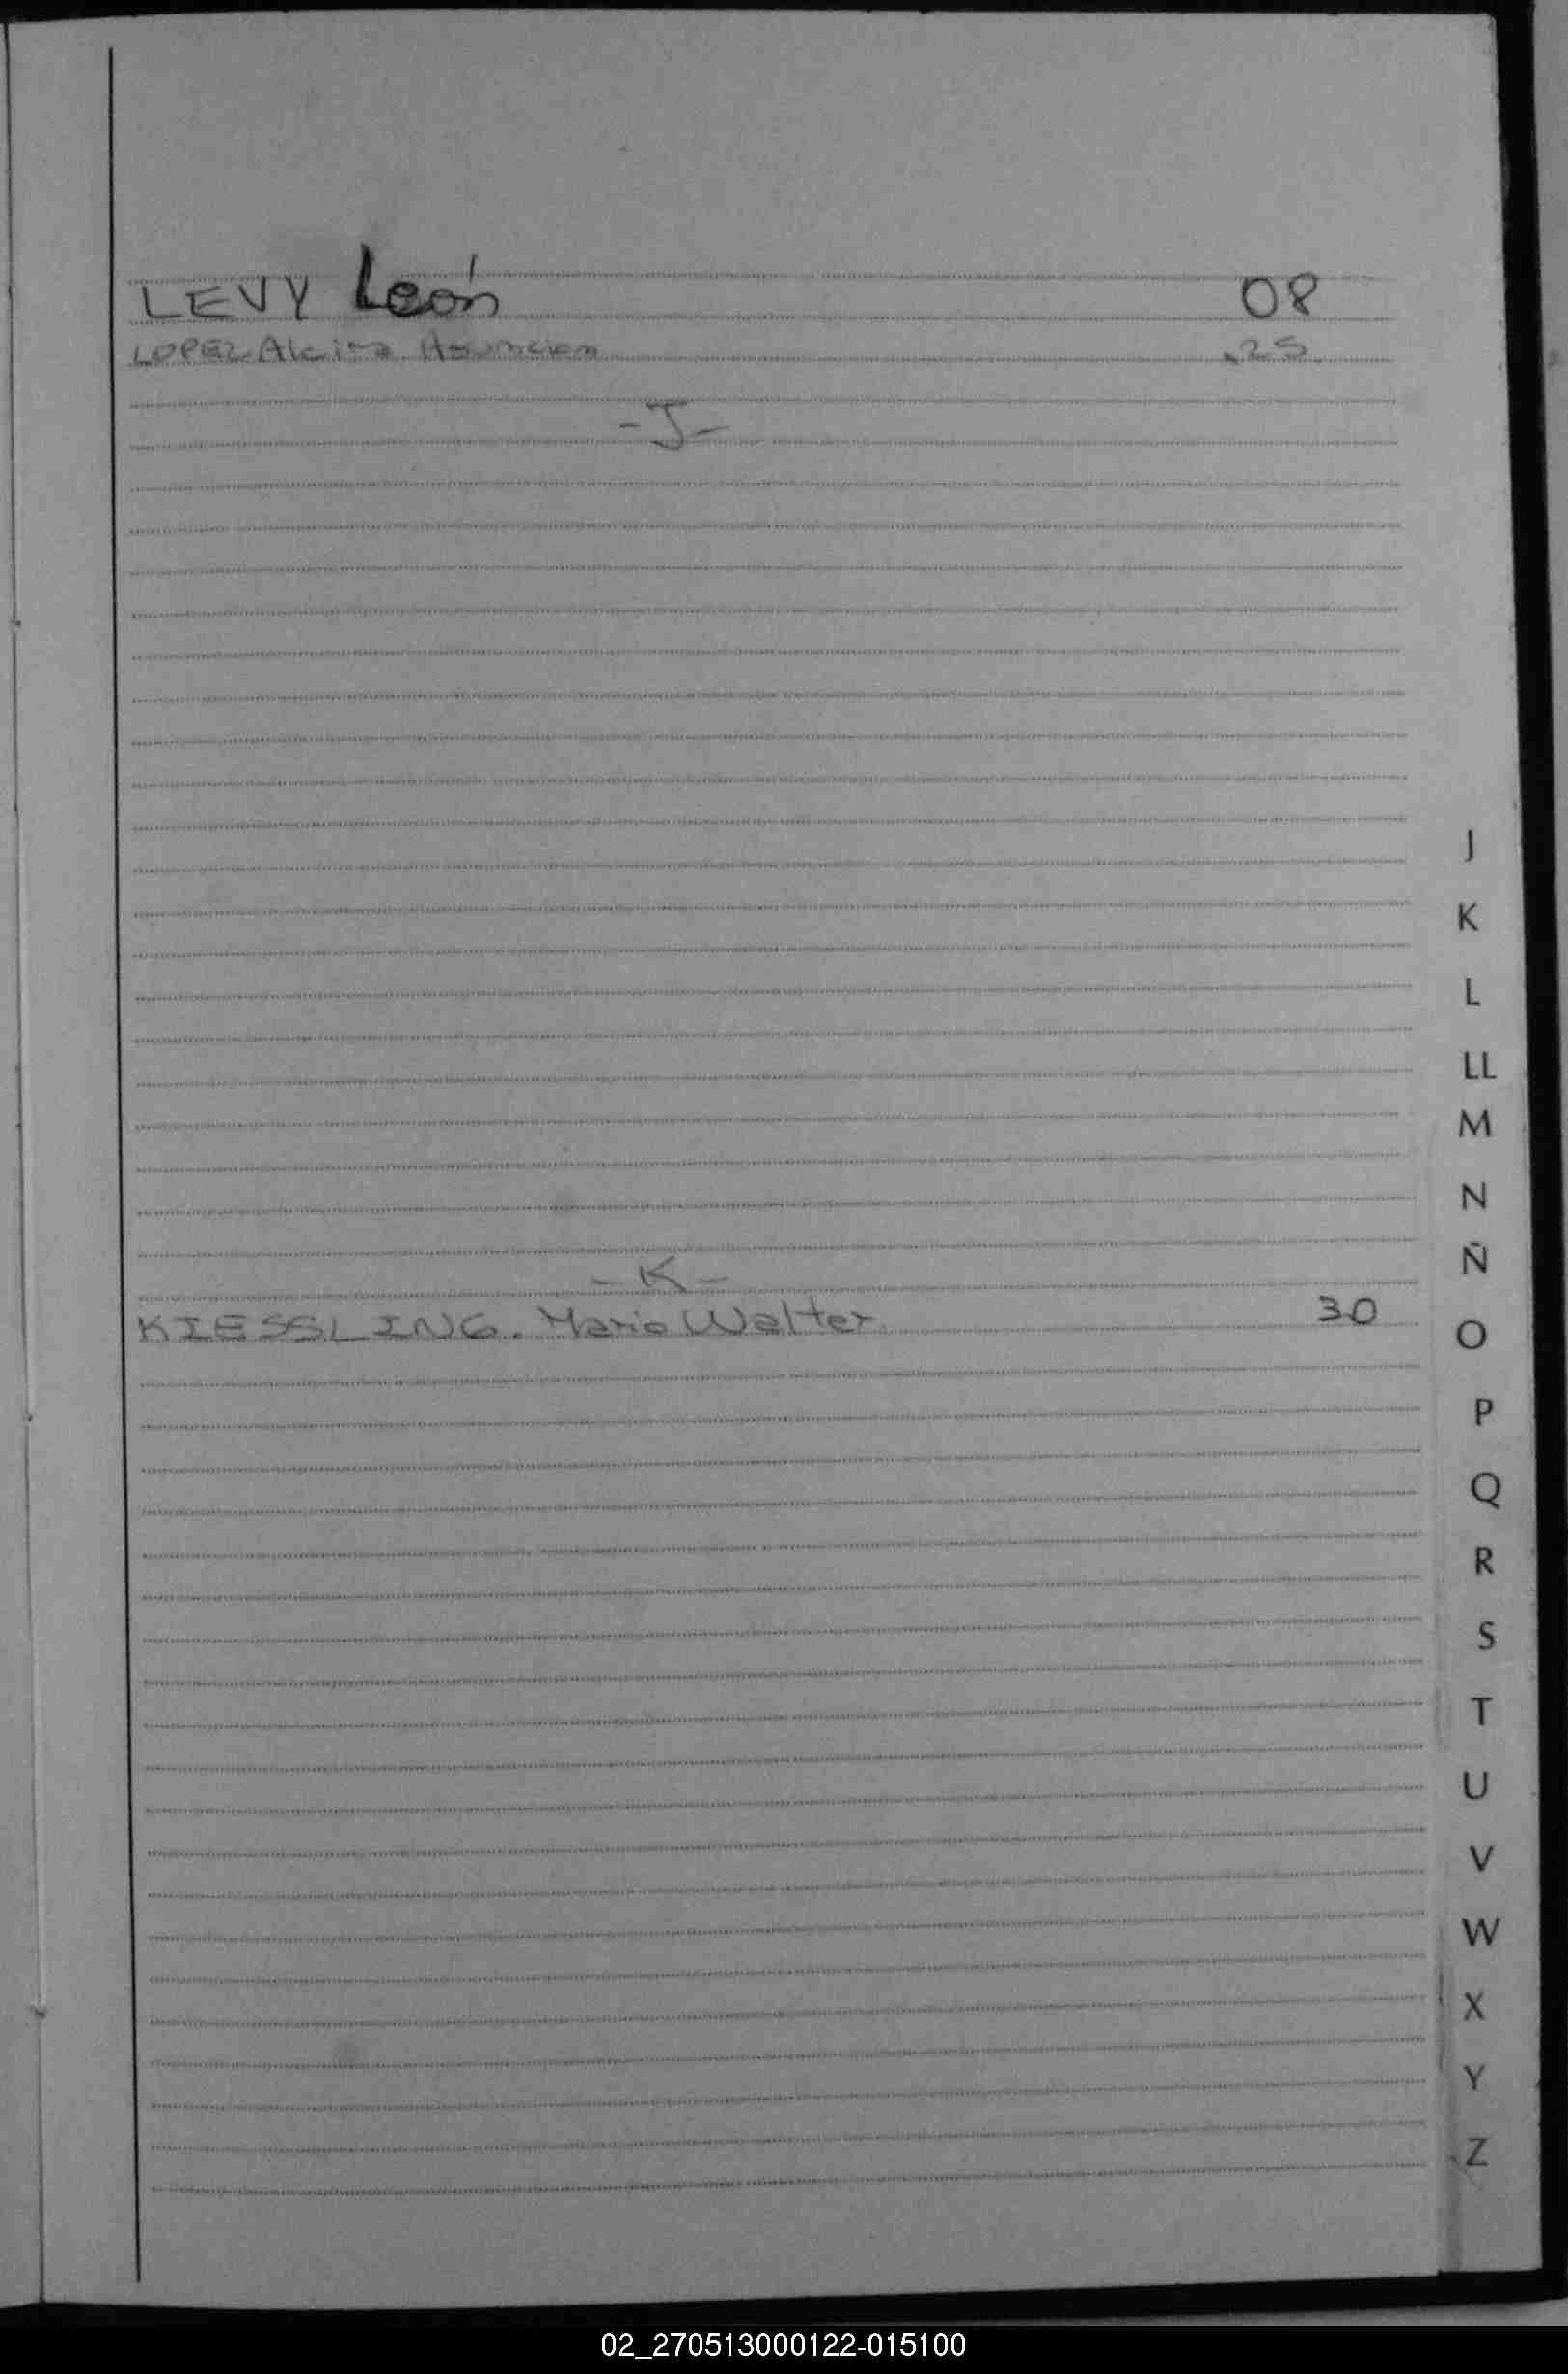 LEVY León 08
LOPEZ Alcira Asuncion 25
-J-
-K-
KIESSLING. Mario Walter 30
J
K
L
LL
M
N
Ñ
O
P
Q
R
S
T
U
V
W
X
Y
Z
02_270513000122-015100